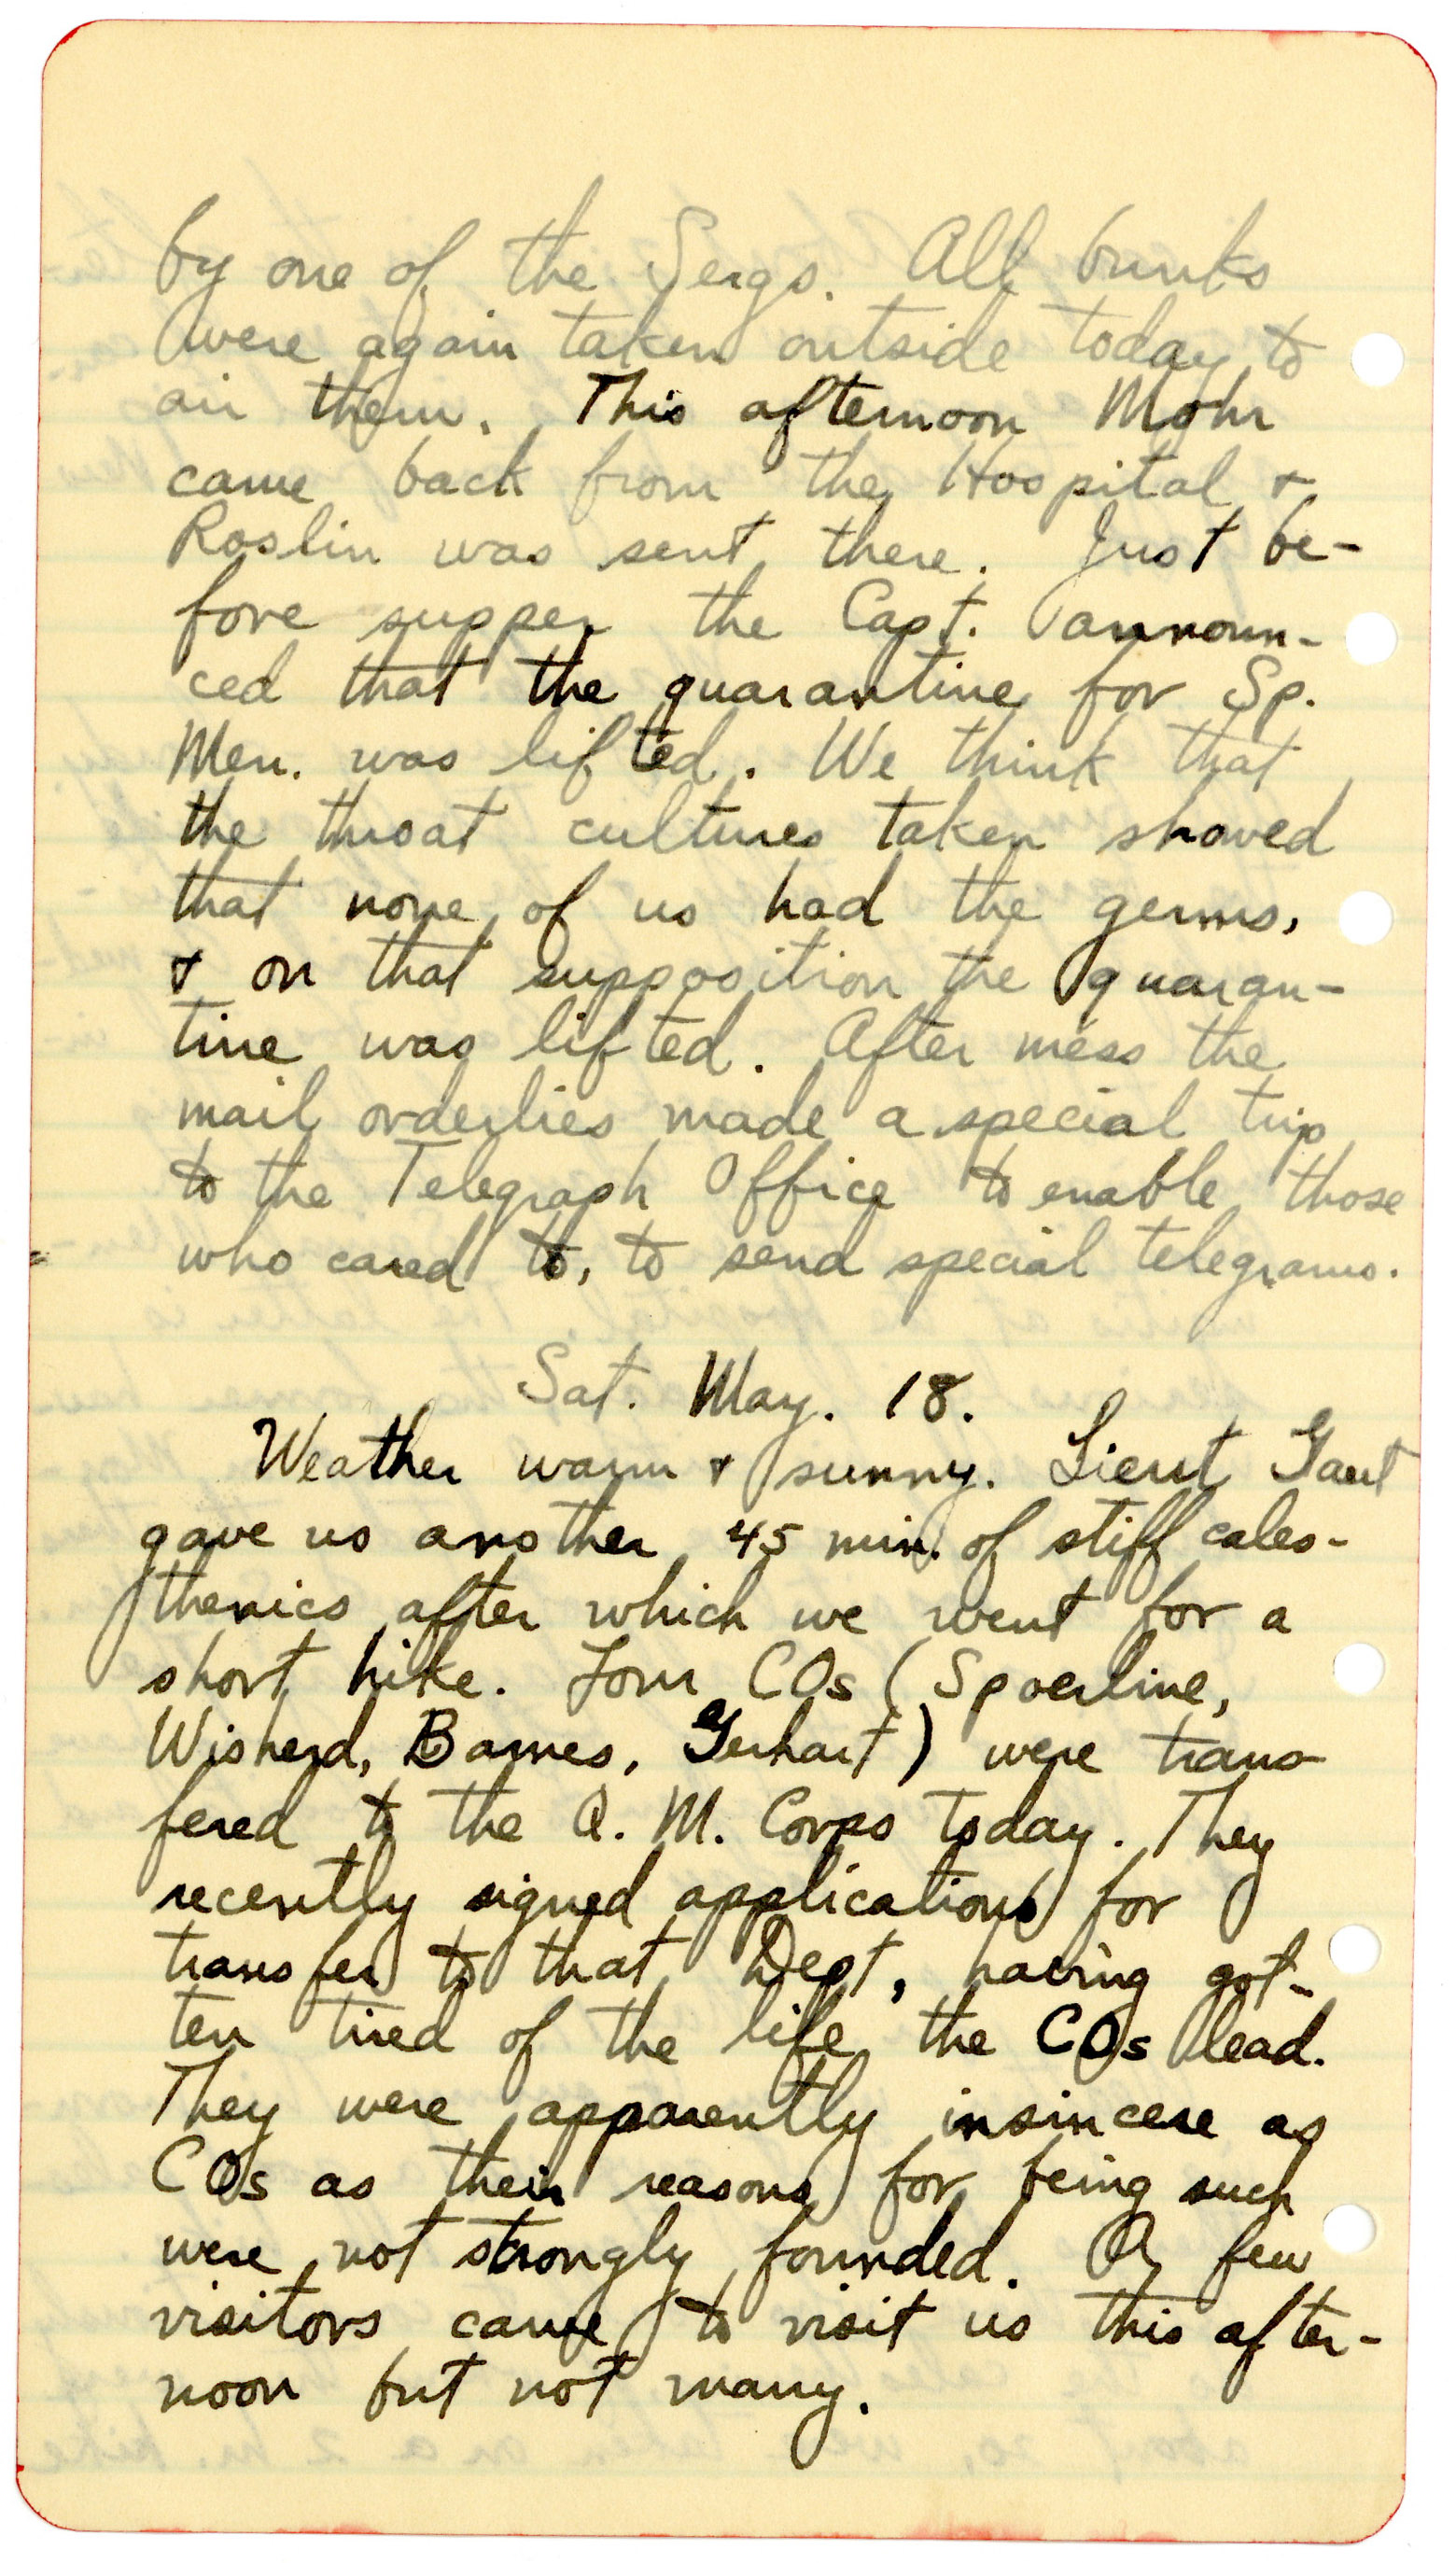 by one of the Sergs. All bunks
were again taken outside today to
air them. This afternoon Mohr
came back from the Hospital &
Roslin was sent there. Just be-
fore supper the Capt. announ-
ced that the quarantine for Sp.
Men. was lifted. We think that
the throat cultures taken showed
that none of us had the germs,
& on that supposition the quaran-
tine was lifted. After mess the
mail orderlies made a special trip
to the Telegraph Office to enable those
who cared to, to send special telegrams.
Sat. May. 18.
Weather warm & sunny. Lieut Gant
gave us another 45 min. of stiff cales-
thenics after which we went for a
short hike. Four COs (Spoerline,
Wisherd, Barnes, Gerhart) were trans
fered to the Q. M. Corps today. They
recently signed applications for
transfer to that Dept, having got-
ten tired of the life the COs lead.
They were apparently insincere as
COs as their reasons for being such
were not strongly founded. A few
visitors came to visit us this after-
noon but not many.